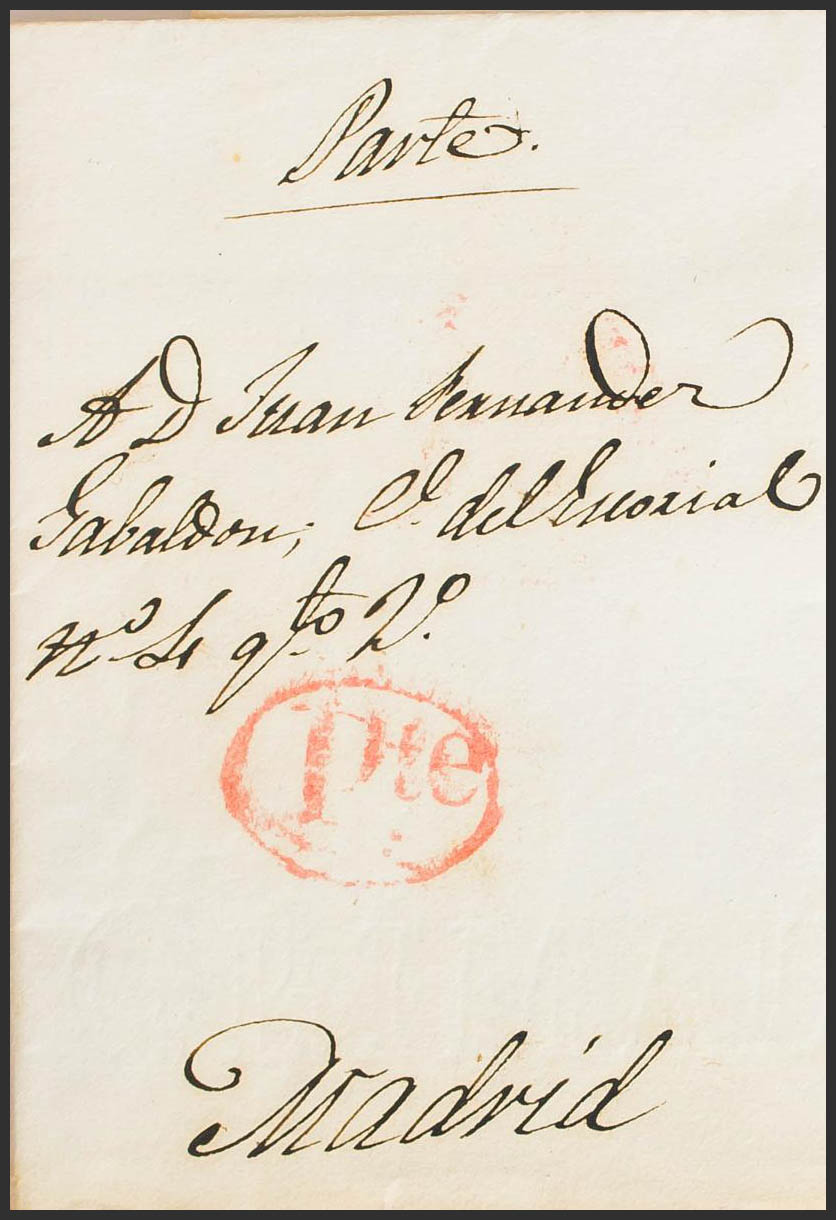 Parte.
A D Juan Fernandez
Gabaldon; C. del Escorial
Nº 4 qto 2º.
Pte
Madrid